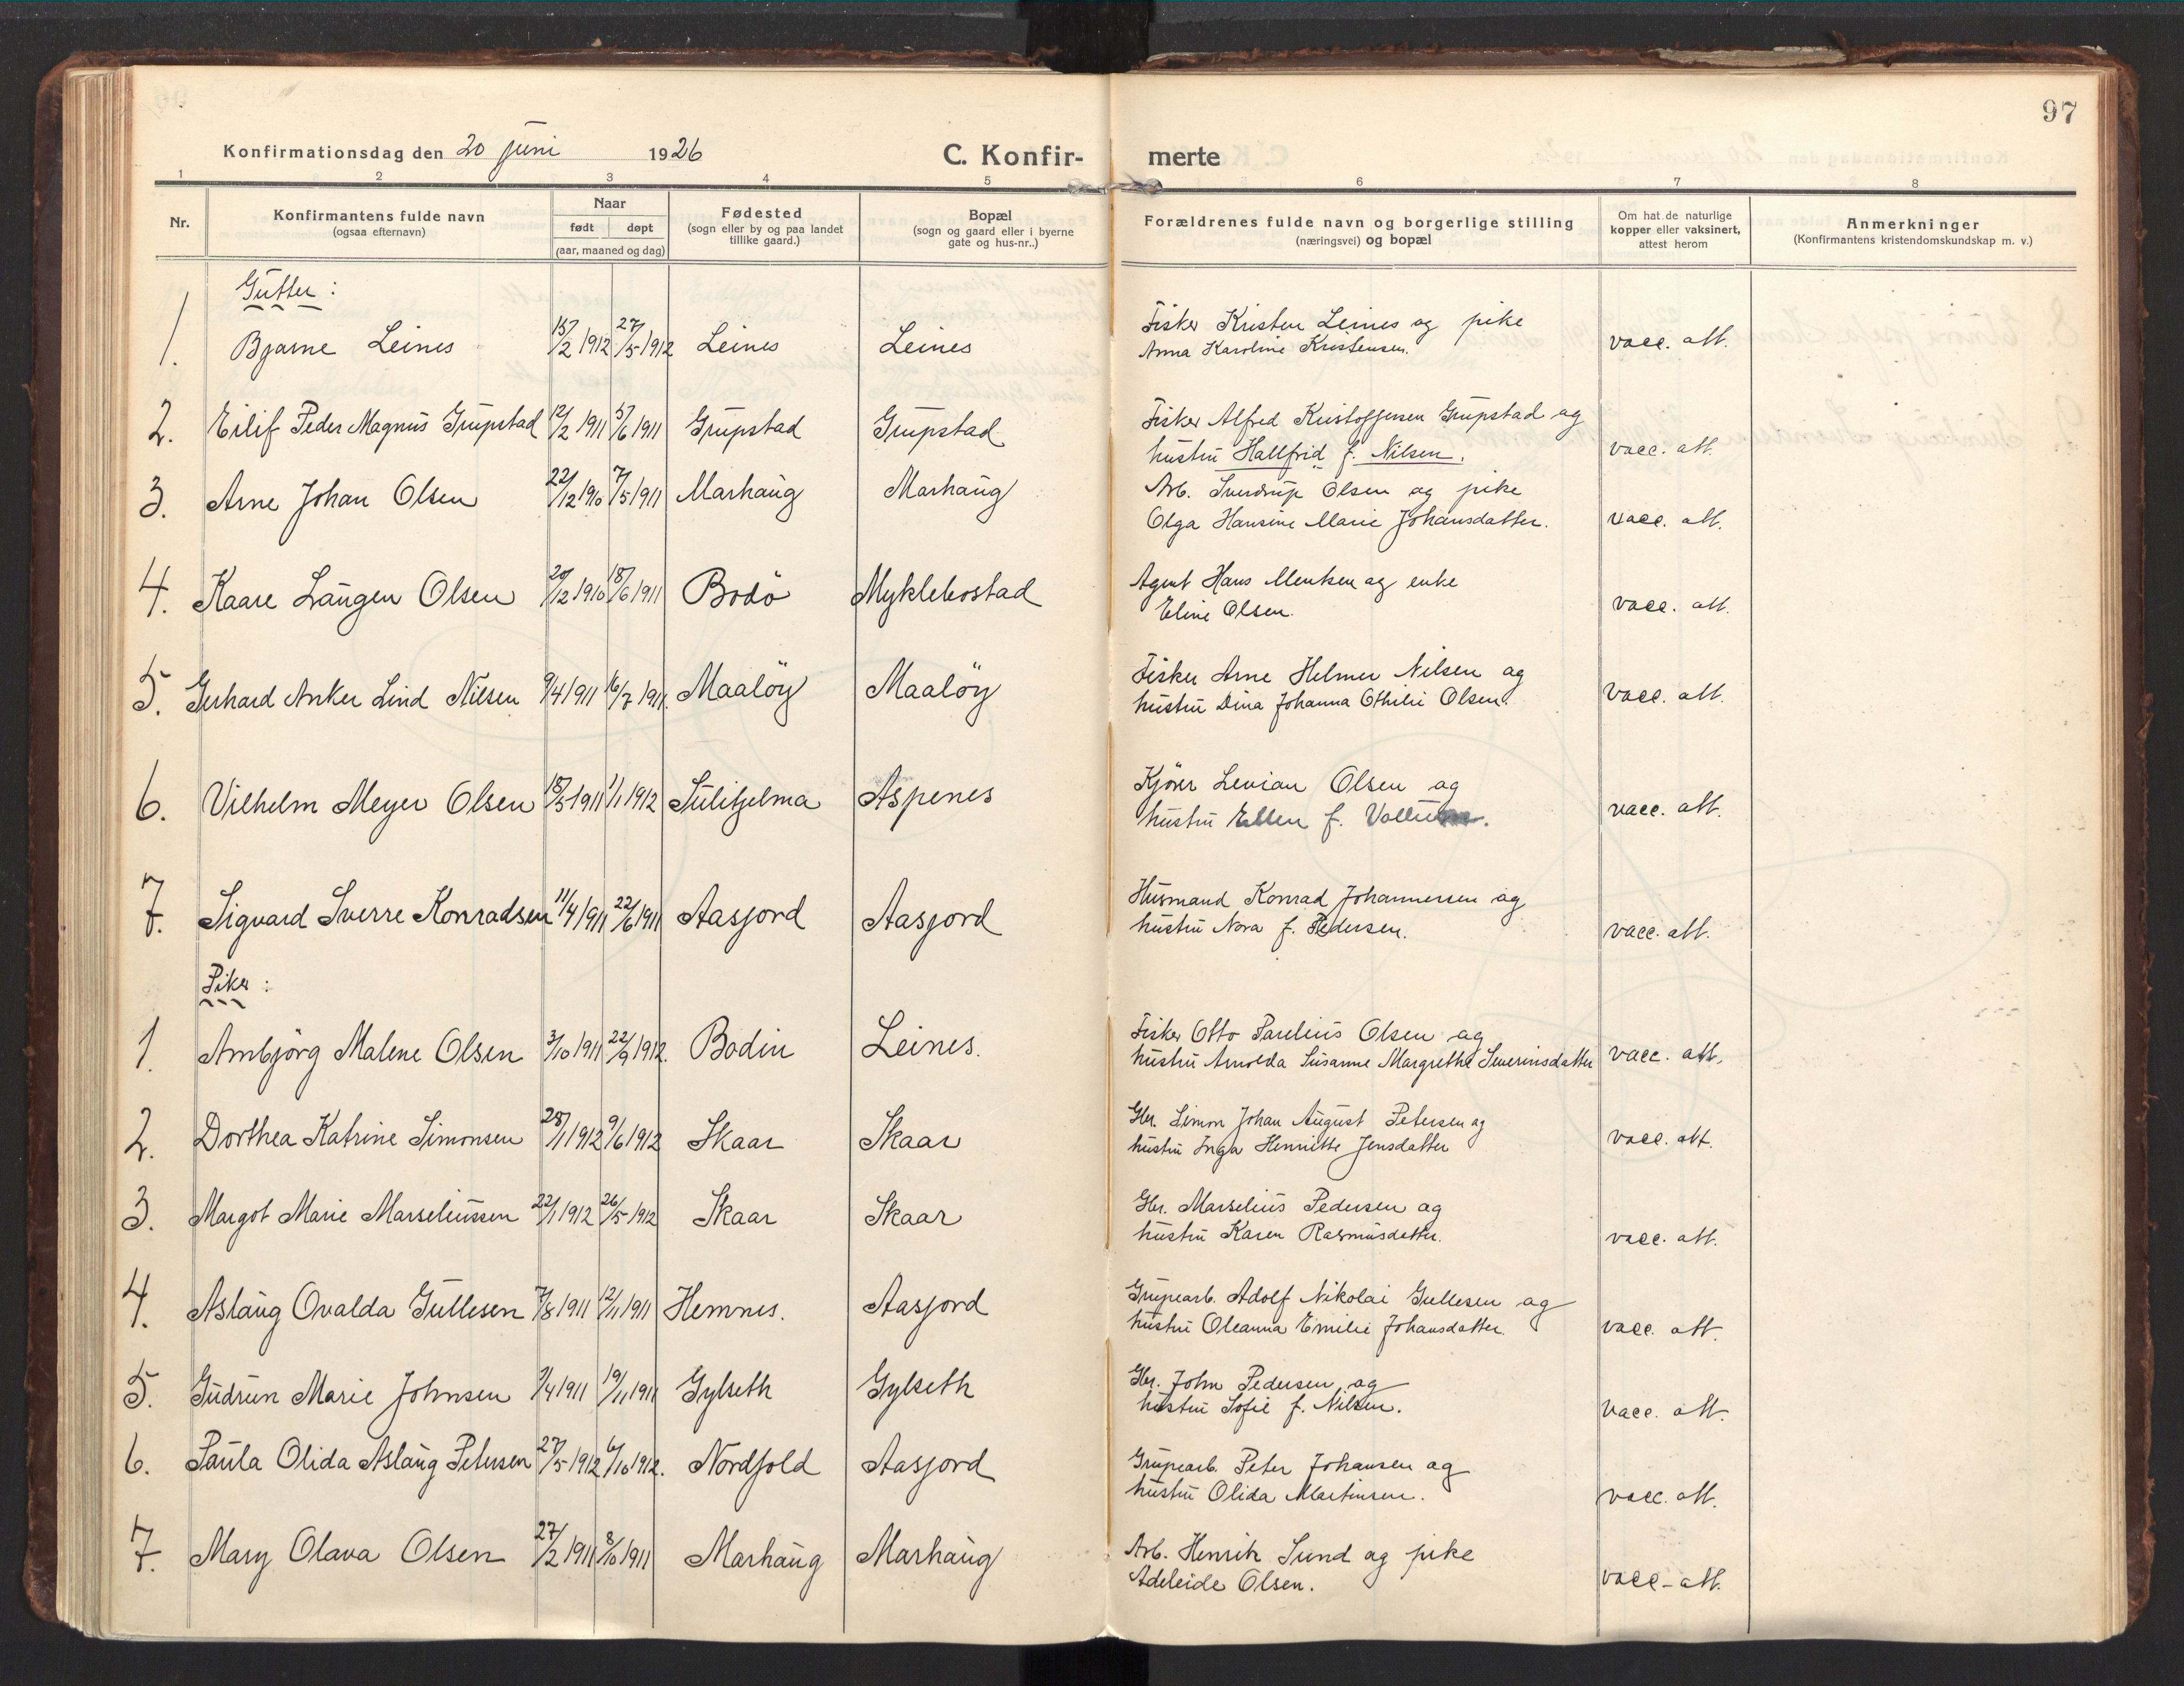 97
Konfirmationsdag den 20 juni 1926 C. Konfir- merte
1 2 3 4 5 6 7 8
Nr.
Konfirmantens fulde navn
(ogsaa efternavn)
Naar
født døpt
(aar, maaned og dag)
Fødested
(sogn eller by og paa landet
tillike gaard.)
Bopæl
(sogn og gaard eller i byerne
gate og hus-nr..)
Forældrenes fulde navn og borgerlige stilling
(næringsvei) og bopæl
Om hat de naturlige
kopper eller vaksinert,
attest herom
Anmerkninger
(Konfirmantens kristendomskundskap m. v.)
Gutter :
1. Bjarne Leines 15/2 1912 27/5 1912 Leines Leines
Fisker Kristen Leines og pike
Anna Karoline Kristensen. vacc. att.
2. Eilif Peder Magnus Grupstad 12/2 1911 5/6 1911 Grupstad Grupstad
Fisker Alfred Kristoffersen Grupstad og
hustru Hallfrid f. Nilsen. vacc. att.
3. Arne Johan Olsen 22/12 1910 7/5 1911 Marhaug Marhaug
Arb. Sverdrup Olsen og pike
Olga Hansine Marie Johansdatter. vacc. att.
4. Kaare Langen Olsen 20/12 1910 18/6 1911 Bodö Myklebostad
Agent Hans Mentsen og enke
Eline Olsen. vacc. att.
5. Gerhard Anker Lind Nilsen 9/4 1911 16/7 1911. Maalöy Maalöy
Fisker Arne Helmer Nilsen og
hustru Dina Johanna Othilie Olsen. vacc. att.
6. Vilhelm Meyer Olsen 18/5 1911 1/1 1912 Sulitjelma Aspenes
Kjörer Levian Olsen og
hustru Ellen f. vacc. att.
7. Sigvard Sverre Konradsen 11/4 1911 22/6 1911 Aasjord Aasjord
Husmand Konrad Johannersen og
hustru Nora f. Pedersen. vacc. att.
Piker :
1. Arnbjörg Malene Olsen 3/10 1911 22/9 1912. Bodin Leines.
Fisker Otto Parelius Olsen og
hustru Arnolda Susanne Margrethe Severinsdatter vacc. att.
2. Dorthea Katrine Simonsen 28/1 1912 9/6 1912 Skaar Skaar
Gbr. Simon Johan August Petersen og
hustru Inga Henriette Jensdatter vacc. att.
3. Margot Marie Marseliussen 22/1 1912 26/5 1912 Skaar Skaar
Gbr. Marselius Pedersen og
hustru Karen Rasmusdatter. vacc. att.
4. Aslaug Ovalda Gullesen 7/8 1911 12/11 1911 Hemnes. Aasjord
Grupearb. Adolf Nikolai Gullesen og
hustru Oleanna Emilie Johansdatter. vacc. att.
5. Gudrun Marie Johnsen 9/4 1911 19/11 1911 Gylseth Gylseth
Gbr. John Pedersen og
hustru Sofie f. Nilsen. vacc. att.
6. Paula Olida Aslaug Petersen 27/5 1912 6/10 1912. Nordfold Aasjord
Grupearb. Peter Johansen og
hustru Olida Martinsen. vacc. att.
7. Mary Olava Olsen 27/2 1911 8/10 1911 Marhaug Marhaug
Arb. Henrik Sund og pike
Adeleide Olsen. vacc. att.